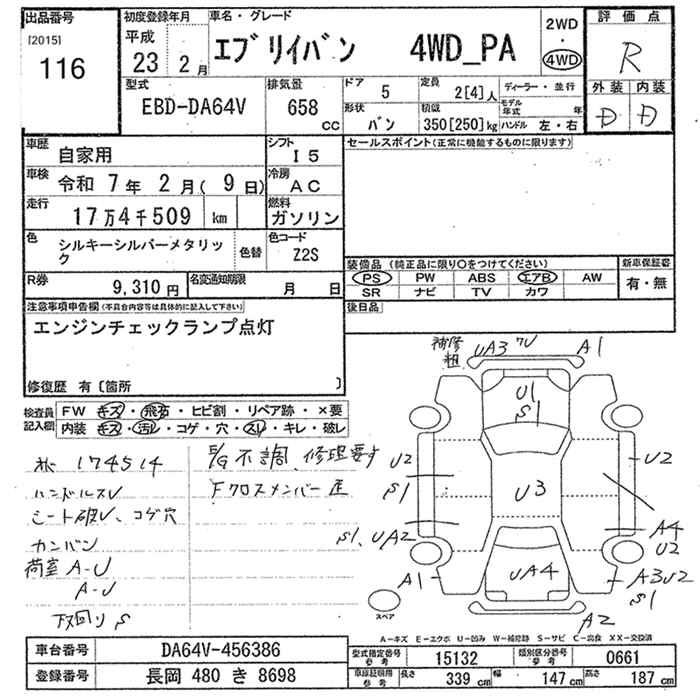 出品番号 初度登録年月 車名・グレード 2WD 評価点
[2015] 平成 エブリイバン 4WD_PA ・ R
116 23 2月 4WD
型式 排気量 ドア 5 定員 2[4]人 ディーラー・並行 外装 内装
EBD-DA64V 658 cc 形状 バン 積載 350[250]kg モデル年式 年 D D
ハンドル 左・右
車歴 自家用 シフト I5 セールスポイント(正常に機能するものに限ります)
車検 令和 7年 2月(9日) 冷房 AC
走行 17万4千509 km 燃料 ガソリン
色 シルキーシルバーメタリック 色替 色コード Z2S
装備品(純正品に限り○をつけてください) 新車保証書
R券 9,310円 名変通知期限 月 日 PS PW ABS エアB AW 有・無
SR ナビ TV カワ
注意事項申告欄(不具合内容等は具体的に記入して下さい) 後日品
エンジンチェックランプ点灯
修復歴 有〔箇所 〕
補修粗 UA3 ワレ A1
U1
S1
検査員記入欄 FW キズ・飛石・ヒビ割・リペア跡・×要
内装 キズ・汚レ・コゲ・穴・スレ・キレ・破レ
174514 E/G不調 修理要す U2 U2
ハンドルスレ Fクロスメンバー S1 U3
シート破レ、コゲ穴 S1、UA2 A4
カンバン U2
荷室 A-U A1 UA4 A3U2
A-U S1
下回りS スペア A2
A-キズ E-エクボ U-凹み W-補修跡 S-サビ C-腐食 XX-交換済
車台番号 DA64V-456386 型式指定番号 参考 15132 類別区分番号 参考 0661
登録番号 長岡 480 き 8698 車庫証明用 参考 長さ 339cm 幅 147cm 高さ 187cm